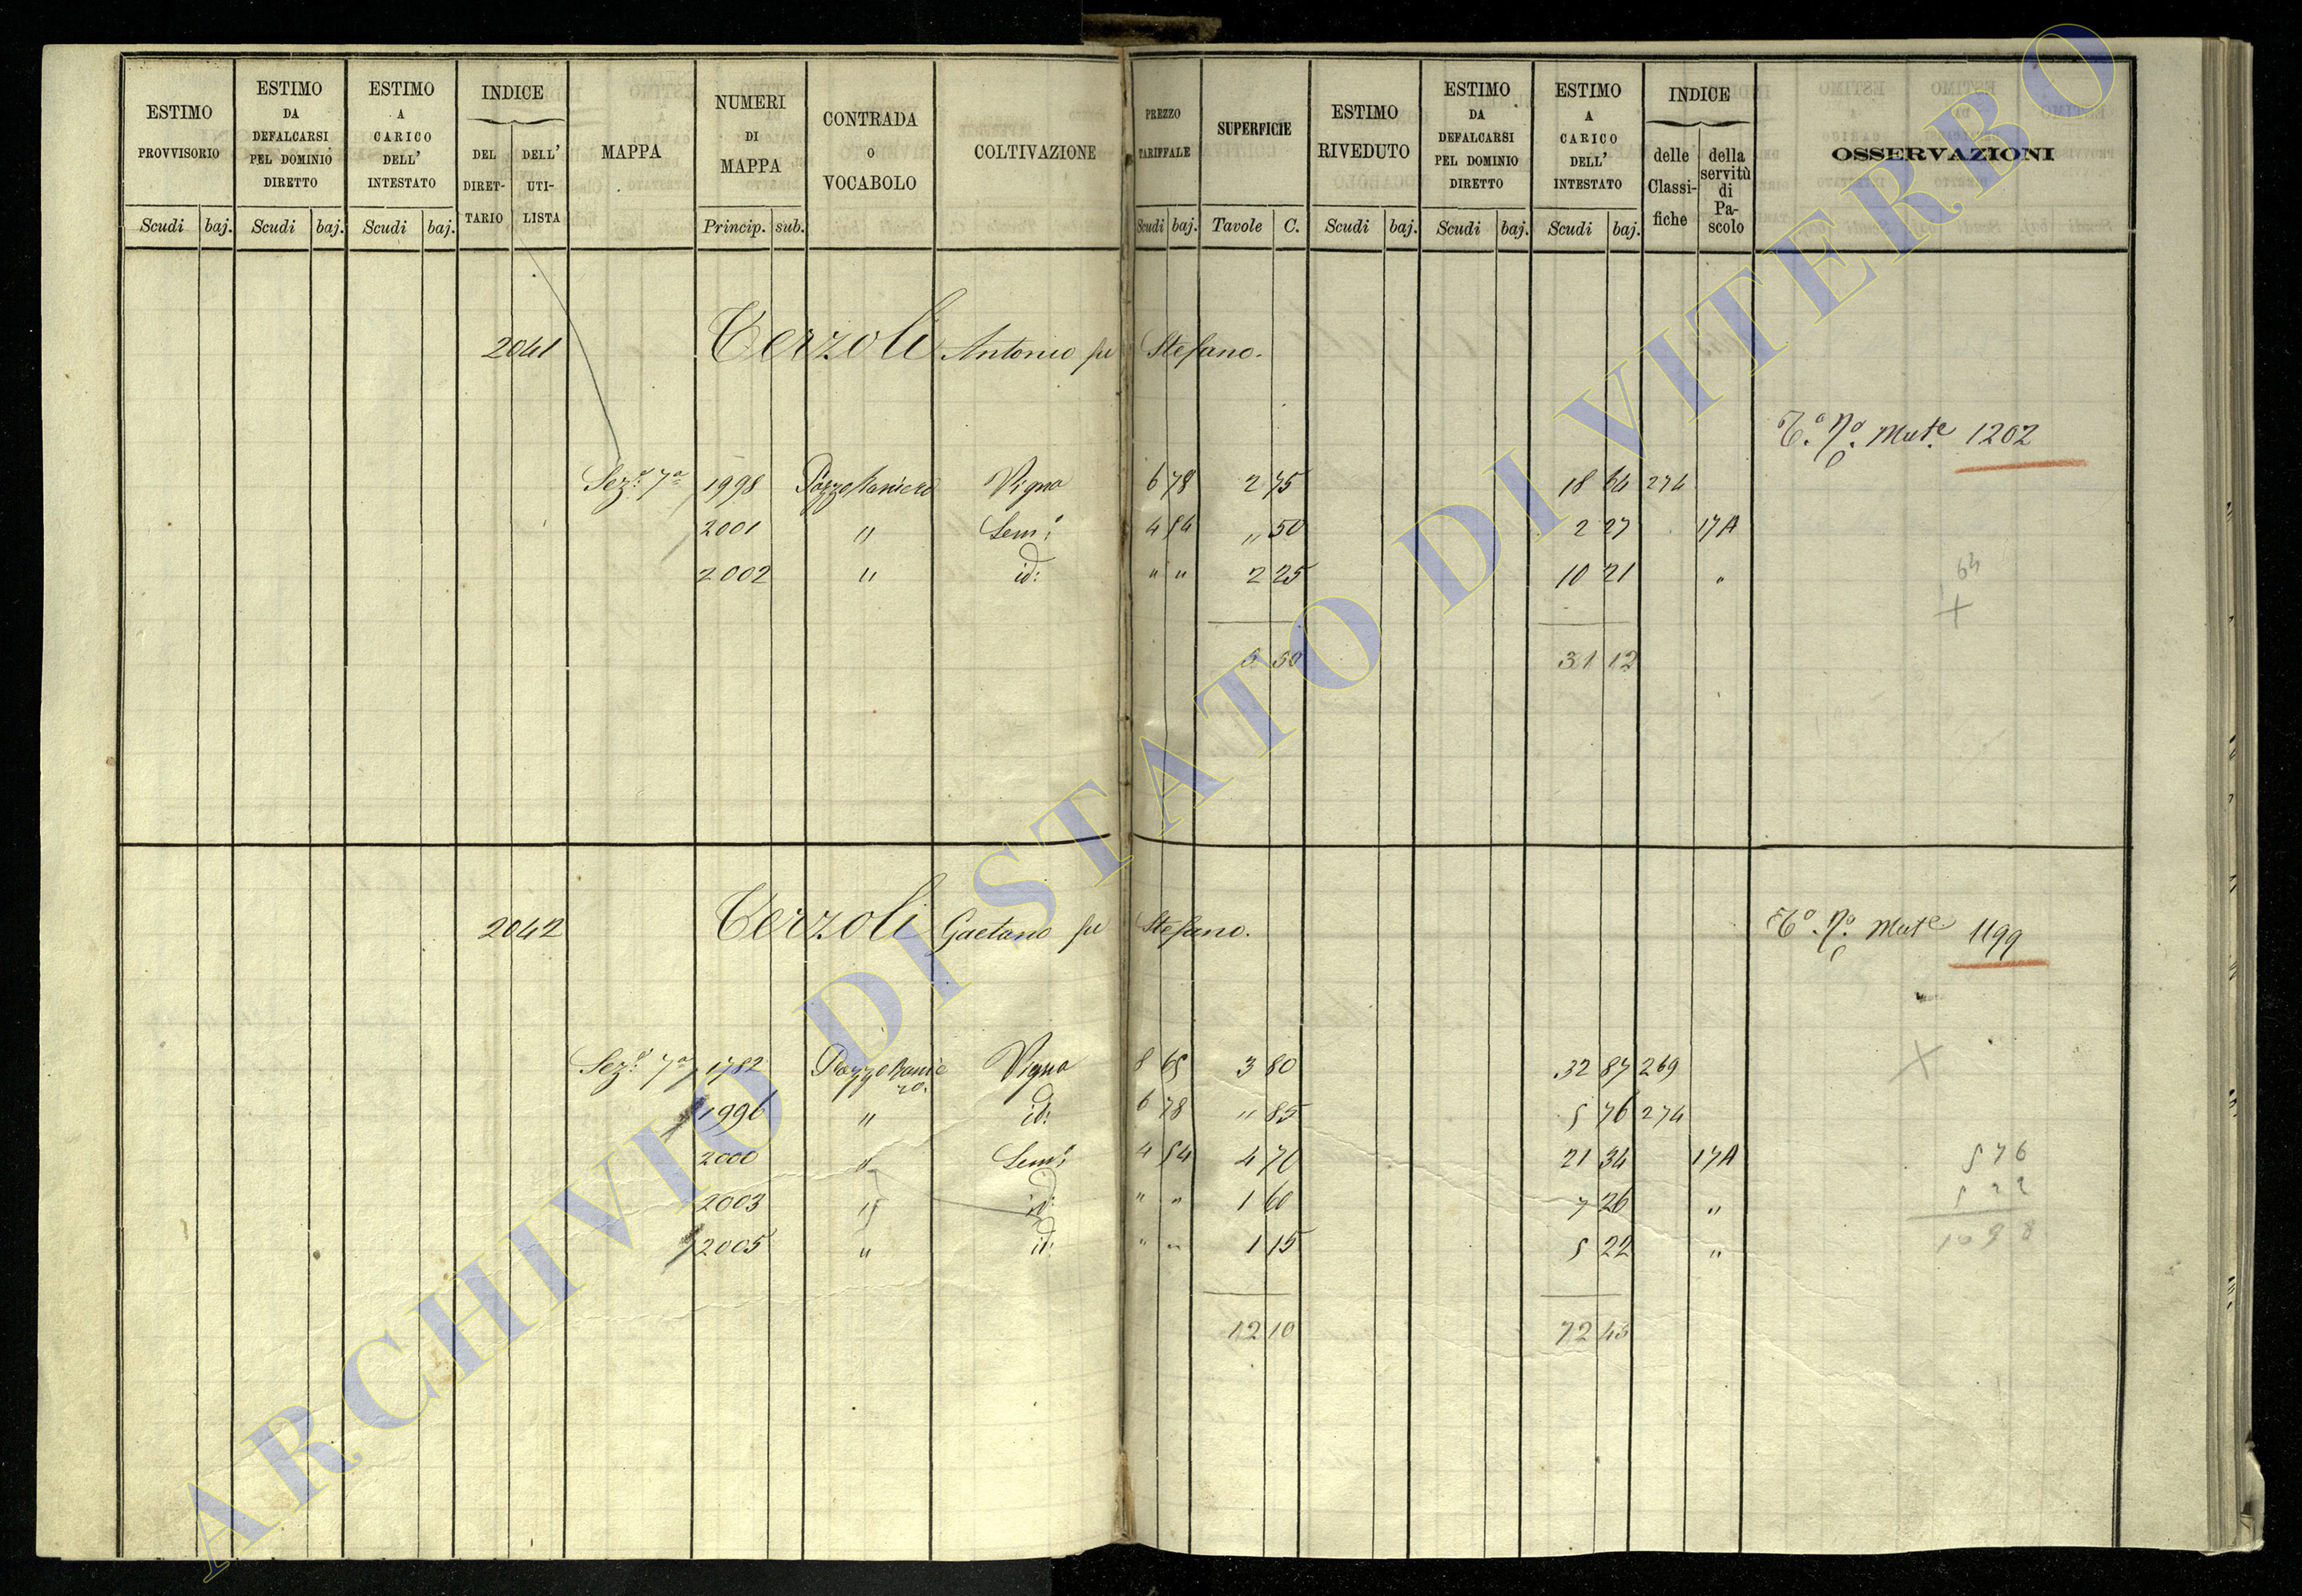 ESTIMO PROVVISORIO Scudi baj.
ESTIMO DA DEFALCARSI PEL DOMINIO DIRETTO Scudi baj.
ESTIMO A CARICO DELL' INTESTATO Scudi baj.
INDICE DEL DIRET-TARIO DELL' UTI-LISTA
MAPPA
NUMERI DI MAPPA Princip. sub.
CONTRADA O VOCABOLO
COLTIVAZIONE
PREZZO TARIFFALE Scudi baj.
SUPERFICIE Tavole C.
ESTIMO RIVEDUTO Scudi baj.
ESTIMO DA DEFALCARSI PEL DOMINIO DIRETTO Scudi baj.
ESTIMO A CARICO DELL' INTESTATO Scudi baj.
INDICE delle Classi-fiche della servitù di Pa-scolo
OSSERVAZIONI
2041 Terzoli Antonio fu Stefano.
T.º N.º Mut.e 1202
Sez.e 7a 1998 Pozzo Raniero Vigna 6 78 2 75 18 64 274
2001 " Sem.o 4 54 " 50 2 27 17A
2002 " id: " " 2 25 10 21 "
64
5 50 31 12
2042 Terzoli Gaetano fu Stefano.
T.º N.º Mut.e 1199
Sez.e 7a 1782 Pozzo Raniero. Vigna 8 65 3 80 32 87 269
1996 " id: 6 78 " 85 5 76 274
2000 " Sem.o 4 54 4 70 21 34 17A
2003 " id: " " 1 60 7 26 "
2005 " id: " " 1 15 5 22 "
5 76
5 22
10 98
12 10 72 45
ARCHIVIO DI STATO DI VITERBO